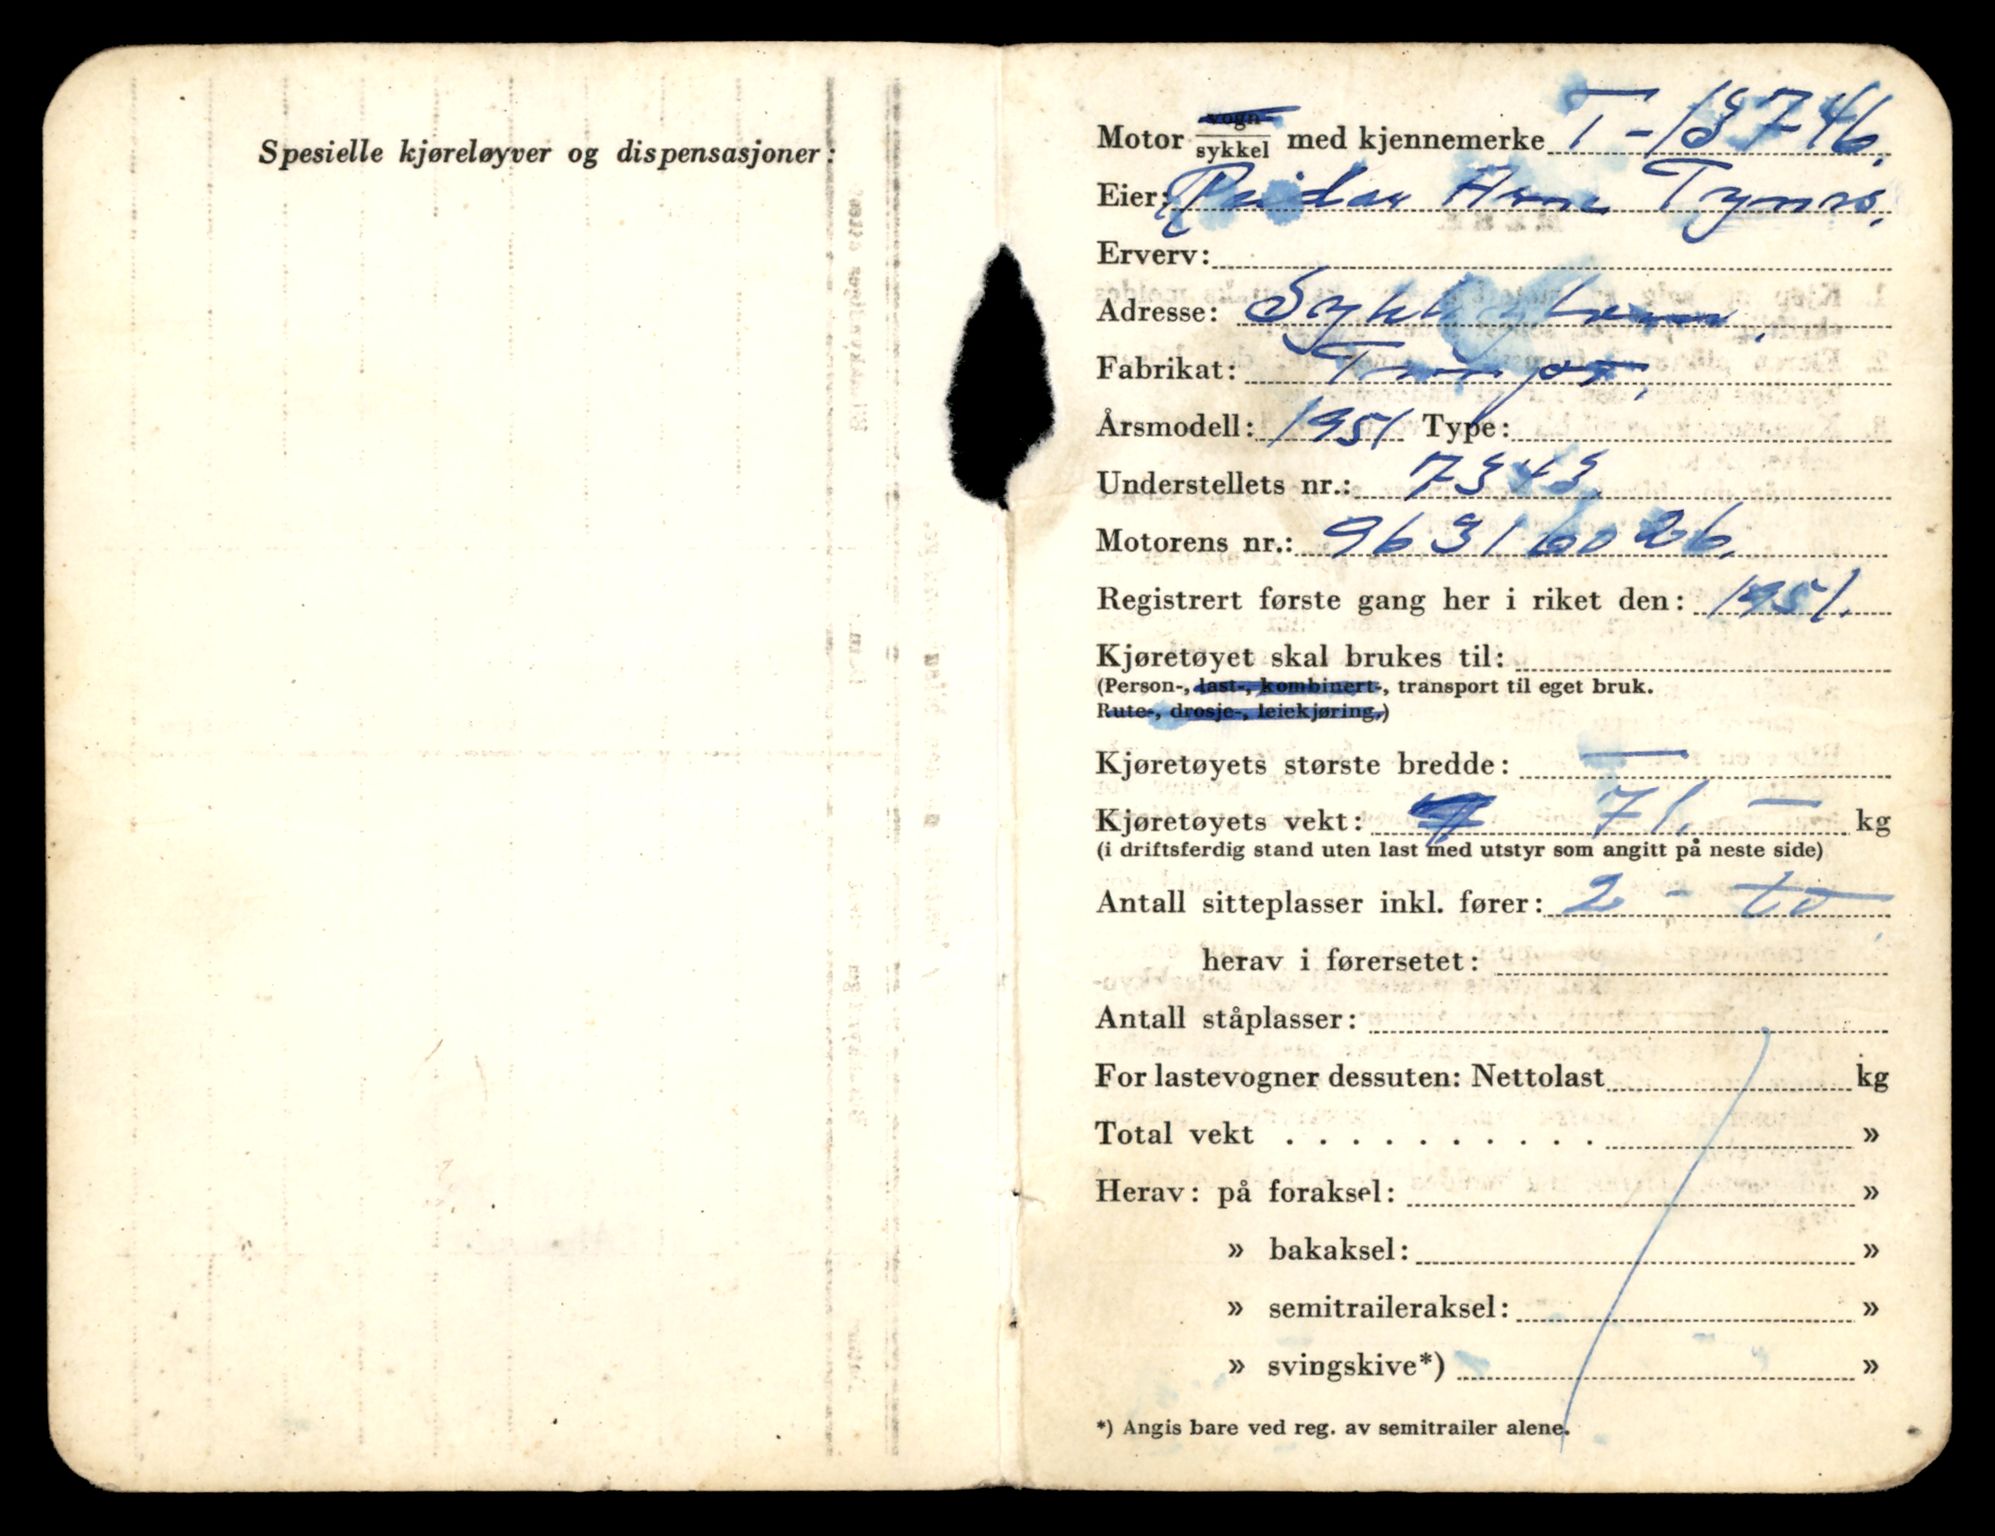 Spesielle kjøreløyver og dispensasjoner:
Motor vogn-/sykkel med kjennemerke T-13746.
Eier: Reidar Arne Tynes.
Erverv:
Adresse: Sykkylven.
Fabrikat: Tempo
Årsmodell: 1951 Type:
Understellets nr.: 7343.
Motorens nr.: 96316026.
Registrert første gang her i riket den: 1951.
Kjøretøyet skal brukes til:
(Person-, last-, kombinert-, transport til eget bruk.
Rute-, drosje-, leiekjøring,)
Kjøretøyets største bredde: —
Kjøretøyets vekt: 71. — kg
(i driftsferdig stand uten last med utstyr som angitt på neste side)
Antall sitteplasser inkl. fører: 2 - to
herav i førersetet:
Antall ståplasser:
For lastevogner dessuten: Nettolast kg
Total vekt . . . . . . . . . . »
Herav: på foraksel: »
» bakaksel: »
» semitraileraksel: »
» svingskive*) »
*) Angis bare ved reg. av semitrailer alene.